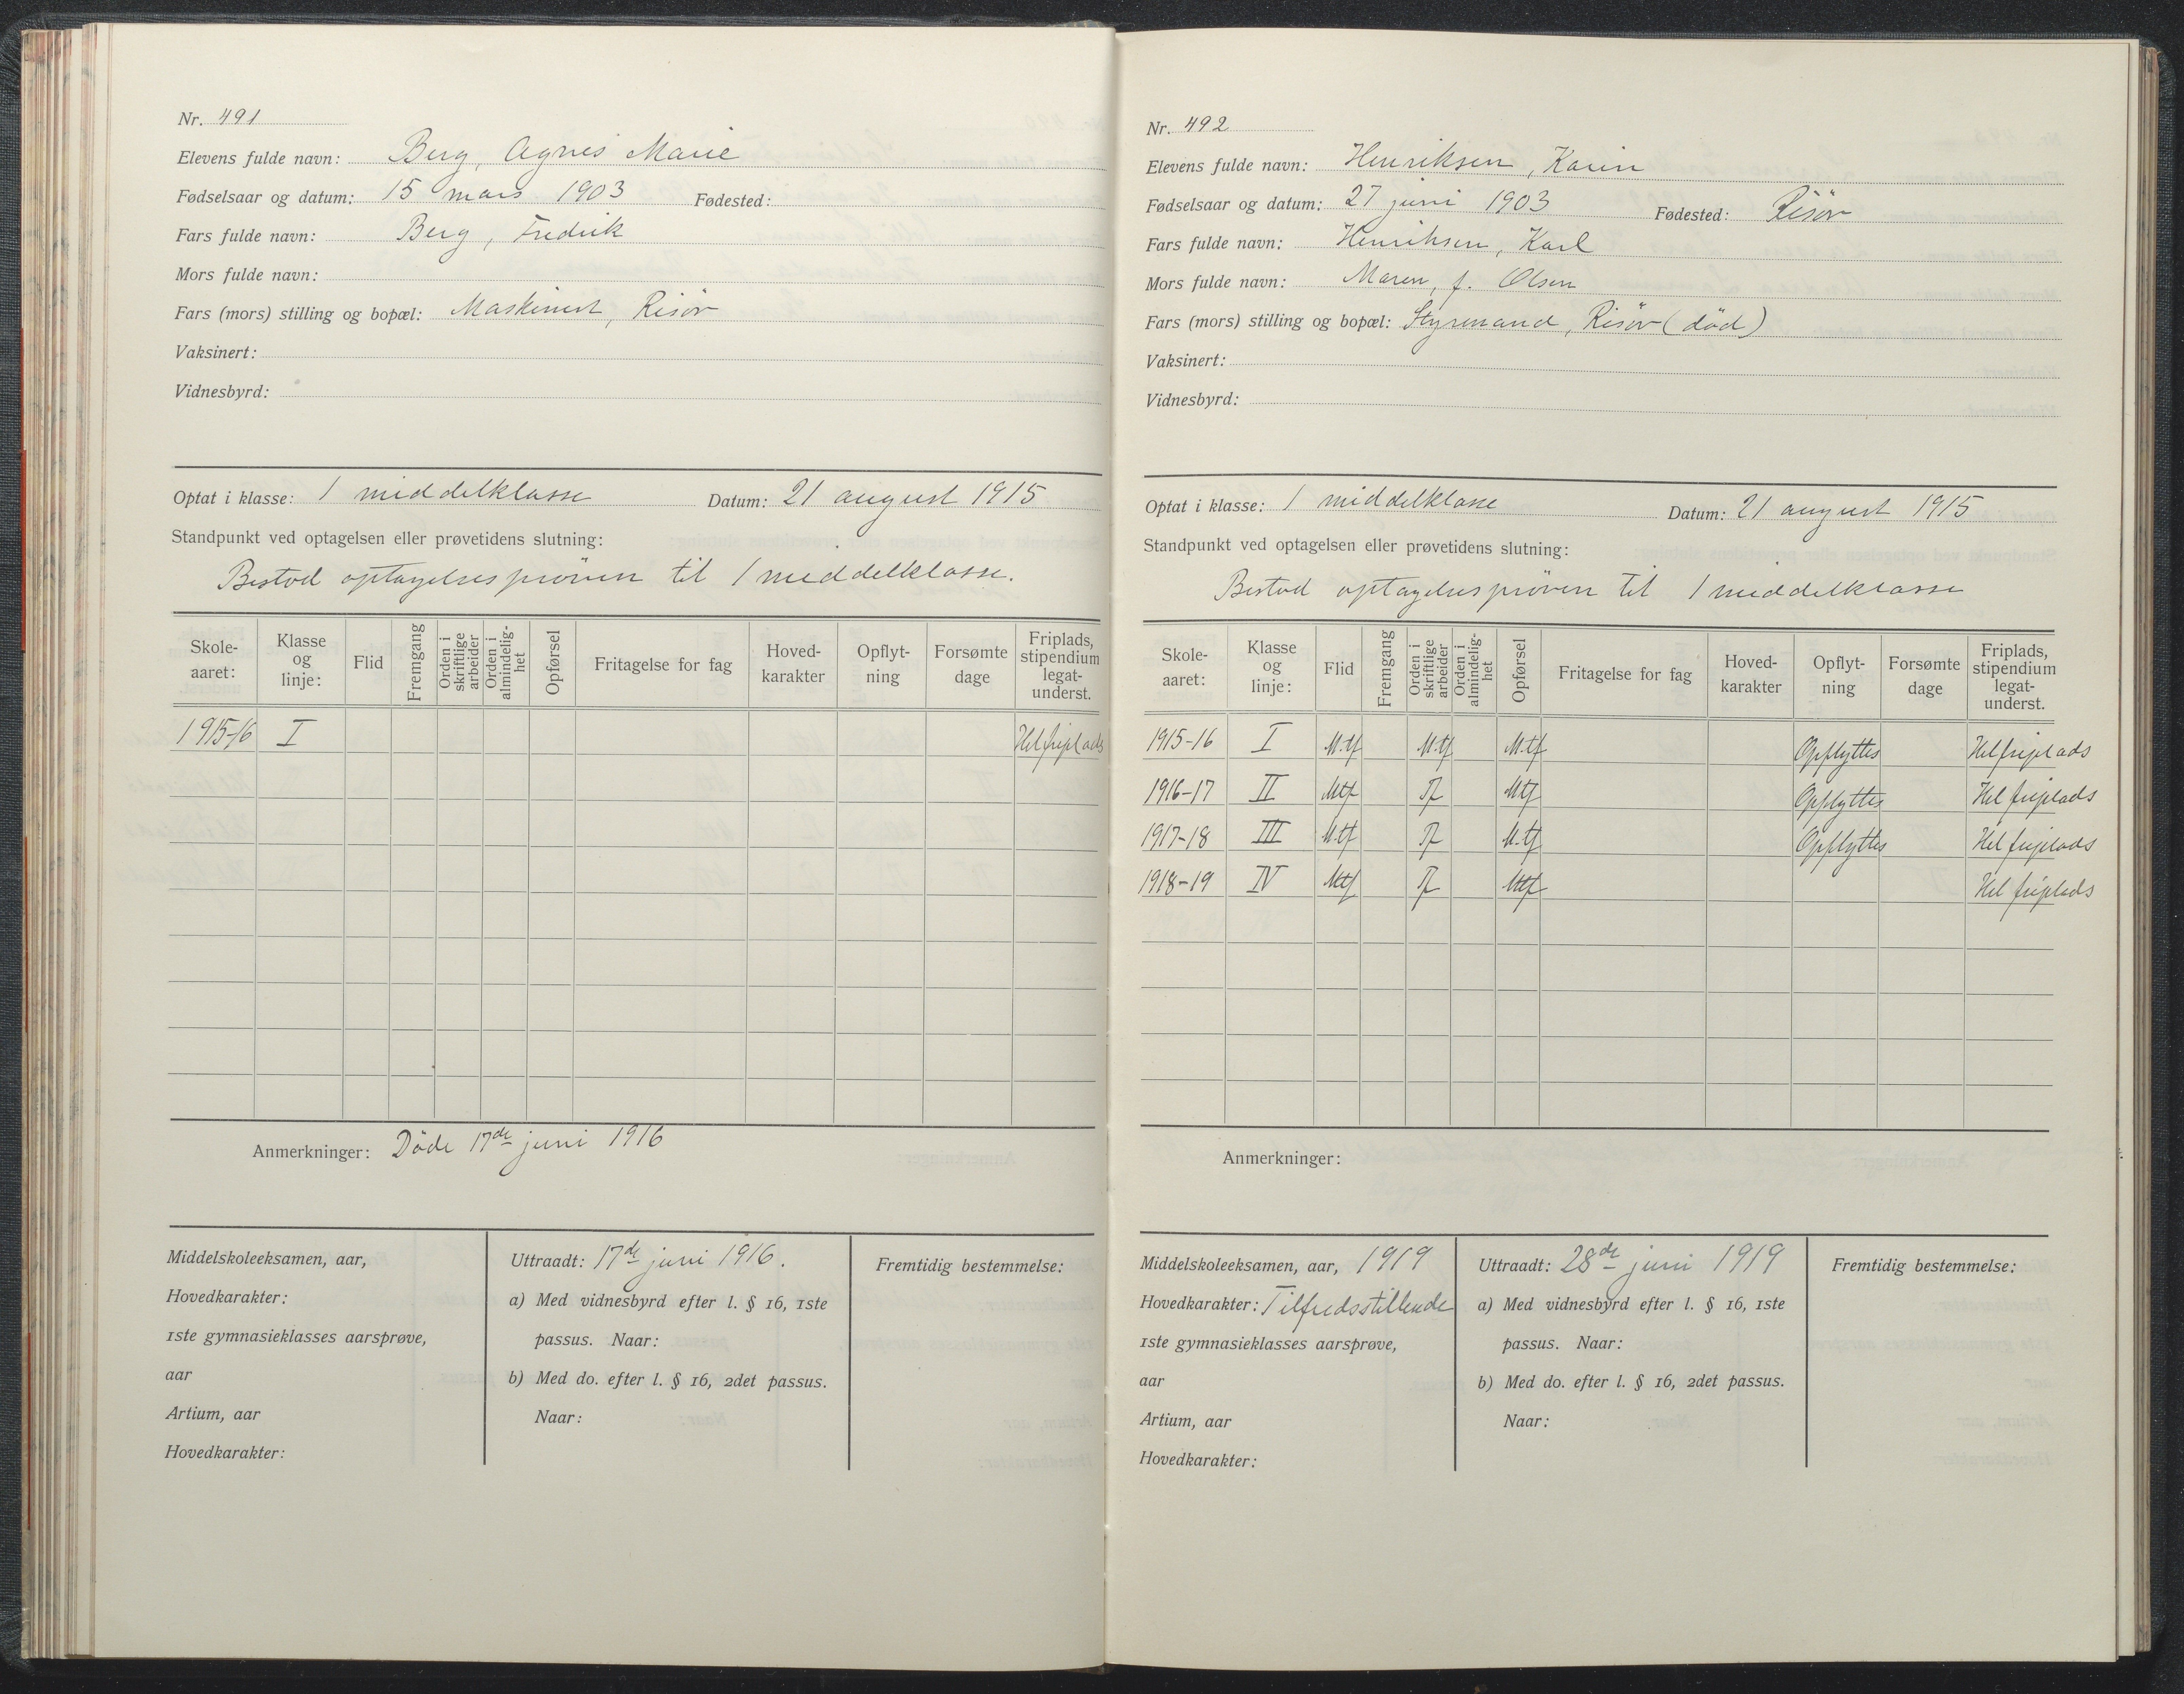 Nr. 491
Elevens fulde navn: Berg, Agnes Marie
Fødselsaar og datum: 15 mars 1903 Fødested:
Fars fulde navn: Berg, Fredrik
Mors fulde navn:
Fars (mors) stilling og bopæl: Maskinist, Risör
Vaksinert:
Vidnesbyrd:
Optat i klasse: 1 middelklasse Datum: 21 august 1915
Standpunkt ved optagelsen eller prøvetidens slutning:
Bestod optagelsespröven til 1 middelklasse.
Skole-aaret: Klasse og linje: Flid Fremgang Orden i skriftlige arbeider Orden i almindelig-het Opførsel Fritagelse for fag Hoved-karakter Opflyt-ning Forsømte dage Friplads, stipendium legat-underst.
1915-16 I Hel friplads
Anmerkninger: Döde 17de juni 1916
Middelskoleeksamen, aar,
Hovedkarakter:
1ste gymnasieklasses aarsprøve,
aar
Artium, aar
Hovedkarakter:
Uttraadt: 17de juni 1916.
a) Med vidnesbyrd efter l. § 16, 1ste
passus. Naar:
b) Med do. efter l. § 16, 2det passus.
Naar:
Fremtidig bestemmelse:
Nr. 492
Elevens fulde navn: Henriksen, Karin
Fødselsaar og datum: 27 juni 1903 Fødested: Risör
Fars fulde navn: Henriksen, Karl
Mors fulde navn: Maren, f. Olsen
Fars (mors) stilling og bopæl: Styrmand, Risör (död)
Vaksinert:
Vidnesbyrd:
Optat i klasse: 1 middelklasse Datum: 21 august 1915
Standpunkt ved optagelsen eller prøvetidens slutning:
Bestod optagelsespröven til 1 middelklasse
Skole-aaret: Klasse og linje: Flid Fremgang Orden i skriftlige arbeider Orden i almindelig-het Opførsel Fritagelse for fag Hoved-karakter Opflyt-ning Forsømte dage Friplads, stipendium legat-underst.
1915-16 I M.tf M.tf M.tf Opflyttes Hel friplads
1916-17 II Mtf Tf Mtf Opflyttes Hel friplads
1917-18 III M.tf Tf M.tf Opflyttes Hel friplads
1918-19 IV Mtf Tf Mtf Hel friplads
Anmerkninger:
Middelskoleeksamen, aar, 1919
Hovedkarakter: Tilfredsstillende
1ste gymnasieklasses aarsprøve,
aar
Artium, aar
Hovedkarakter:
Uttraadt: 28de juni 1919
a) Med vidnesbyrd efter l. § 16, 1ste
passus. Naar:
b) Med do. efter l. § 16, 2det passus.
Naar:
Fremtidig bestemmelse: